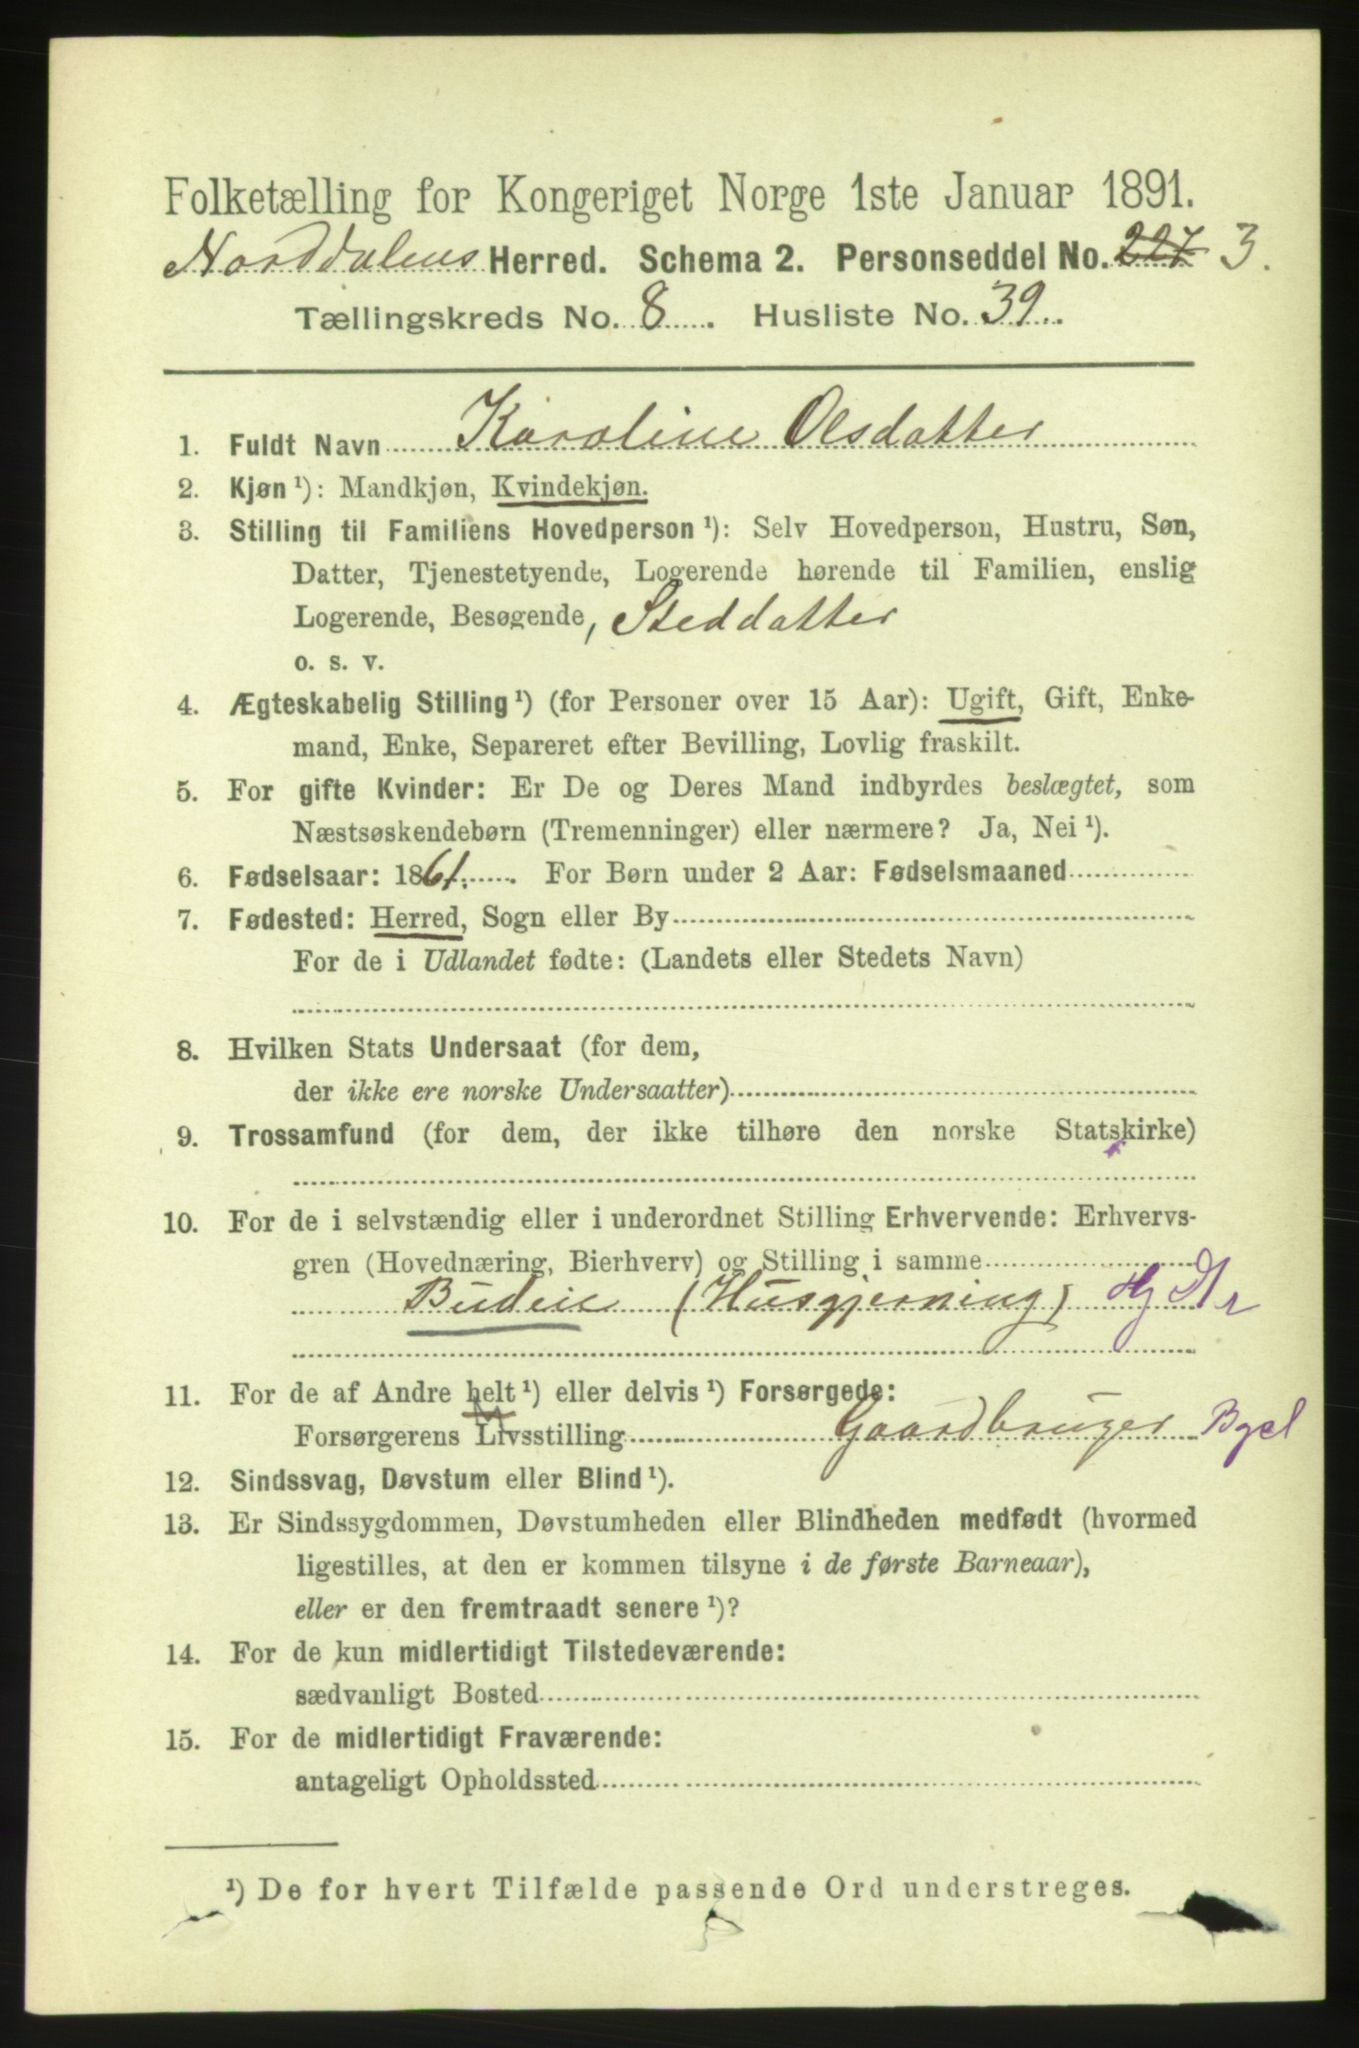 Folketælling for Kongeriget Norge 1ste Januar 1891.
Norddalens Herred. Schema 2. Personseddel No. 227 3.
Tællingskreds No. 8. Husliste No. 39.
1. Fuldt Navn Karoline Olsdatter
2. Kjøn ¹): Mandkjøn, Kvindekjøn.
3. Stilling til Familiens Hovedperson ¹): Selv Hovedperson, Hustru, Søn,
Datter, Tjenestetyende, Logerende hørende til Familien, enslig
Logerende, Besøgende, Steddatter
o. s. v.
4. Ægteskabelig Stilling ¹) (for Personer over 15 Aar): Ugift, Gift, Enke-
mand, Enke, Separeret efter Bevilling, Lovlig fraskilt.
5. For gifte Kvinder: Er De og Deres Mand indbyrdes beslægtet, som
Næstsøskendebørn (Tremenninger) eller nærmere? Ja, Nei ¹).
6. Fødselsaar: 1861. For Børn under 2 Aar: Fødselsmaaned
7. Fødested: Herred, Sogn eller By
For de i Udlandet fødte: (Landets eller Stedets Navn)
8. Hvilken Stats Undersaat (for dem,
der ikke ere norske Undersaatter)
9. Trossamfund (for dem, der ikke tilhøre den norske Statskirke)
10. For de i selvstændig eller i underordnet Stilling Erhvervende: Erhvervs-
gren (Hovednæring, Bierhverv) og Stilling i samme
Budeie (Husgjerning) Hj
11. For de af Andre helt ¹) eller delvis ¹) Forsørgede:
Forsørgerens Livsstilling Gaardbruger Bgsl
12. Sindssvag, Døvstum eller Blind ¹).
13. Er Sindssygdommen, Døvstumheden eller Blindheden medfødt (hvormed
ligestilles, at den er kommen tilsyne i de første Barneaar),
eller er den fremtraadt senere ¹)?
14. For de kun midlertidigt Tilstedeværende:
sædvanligt Bosted
15. For de midlertidigt Fraværende:
antageligt Opholdssted
¹) De for hvert Tilfælde passende Ord understreges.